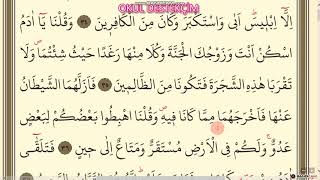 OKUL DESTEKCİM
اِلَّٓا اِبْلٖيسَۜ اَبٰى وَاسْتَكْبَرَ وَكَانَ مِنَ الْكَافِرٖينَ ﴿٣٤﴾ وَقُلْنَا يَٓا اٰدَمُ
اسْكُنْ اَنْتَ وَزَوْجُكَ الْجَنَّةَ وَكُلَا مِنْهَا رَغَدًا حَيْثُ شِئْتُمَاۖ وَلَا
تَقْرَبَا هٰذِهِ الشَّجَرَةَ فَتَكُونَا مِنَ الظَّالِمٖينَ ﴿٣٥﴾ فَاَزَلَّهُمَا الشَّيْطَانُ
عَنْهَا فَاَخْرَجَهُمَا مِمَّا كَانَا فٖيهِۖ وَقُلْنَا اهْبِطُوا بَعْضُكُمْ لِبَعْضٍ
عَدُوٌّۚ وَلَكُمْ فِي الْاَرْضِ مُسْتَقَرٌّ وَمَتَاعٌ اِلٰى حٖينٍ ﴿٣٦﴾ فَتَلَقّٰٓى